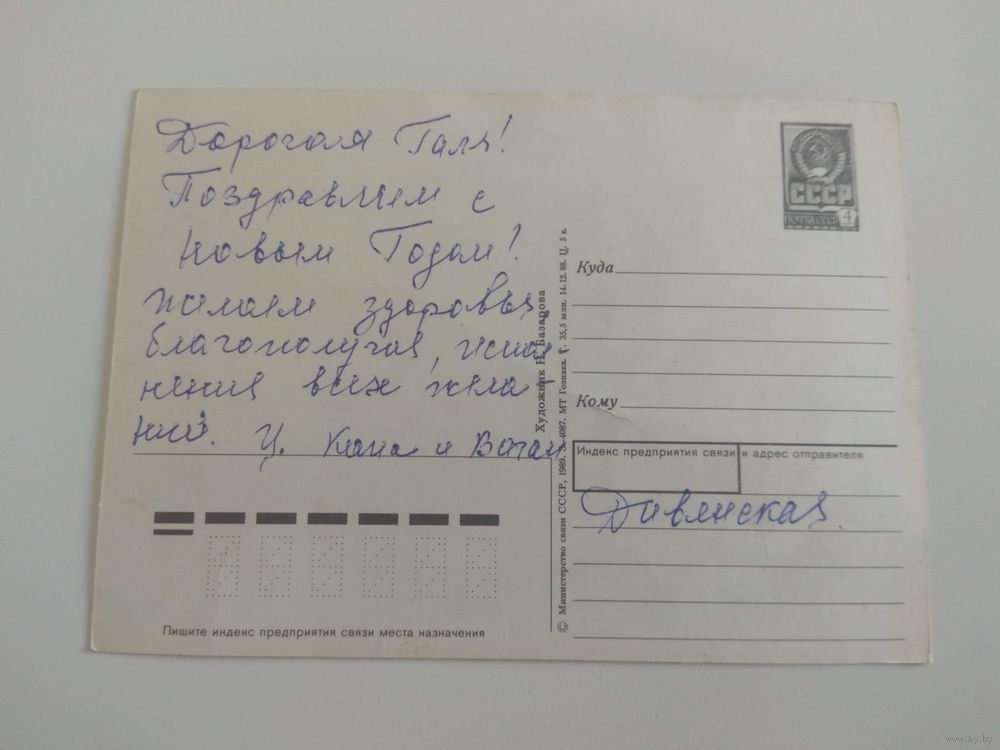 Дорогая Галя!
Поздравляем с
Новым Годом!
Желаем здоровья,
благополучия, испол-
нения всех жела-
ний. Ц.
и
СССР
ПОЧТА СССР
4
Куда
Кому
Индекс предприятия связи и адрес отправителя
Дивенская
Художник Н. Базарова
© Министерство связи СССР, 1989. З. 4087. МТ Гознака. Т. 35,5 млн. 14.12.88. Ц. 5 к.
Пишите индекс предприятия связи места назначения
www.ay.by